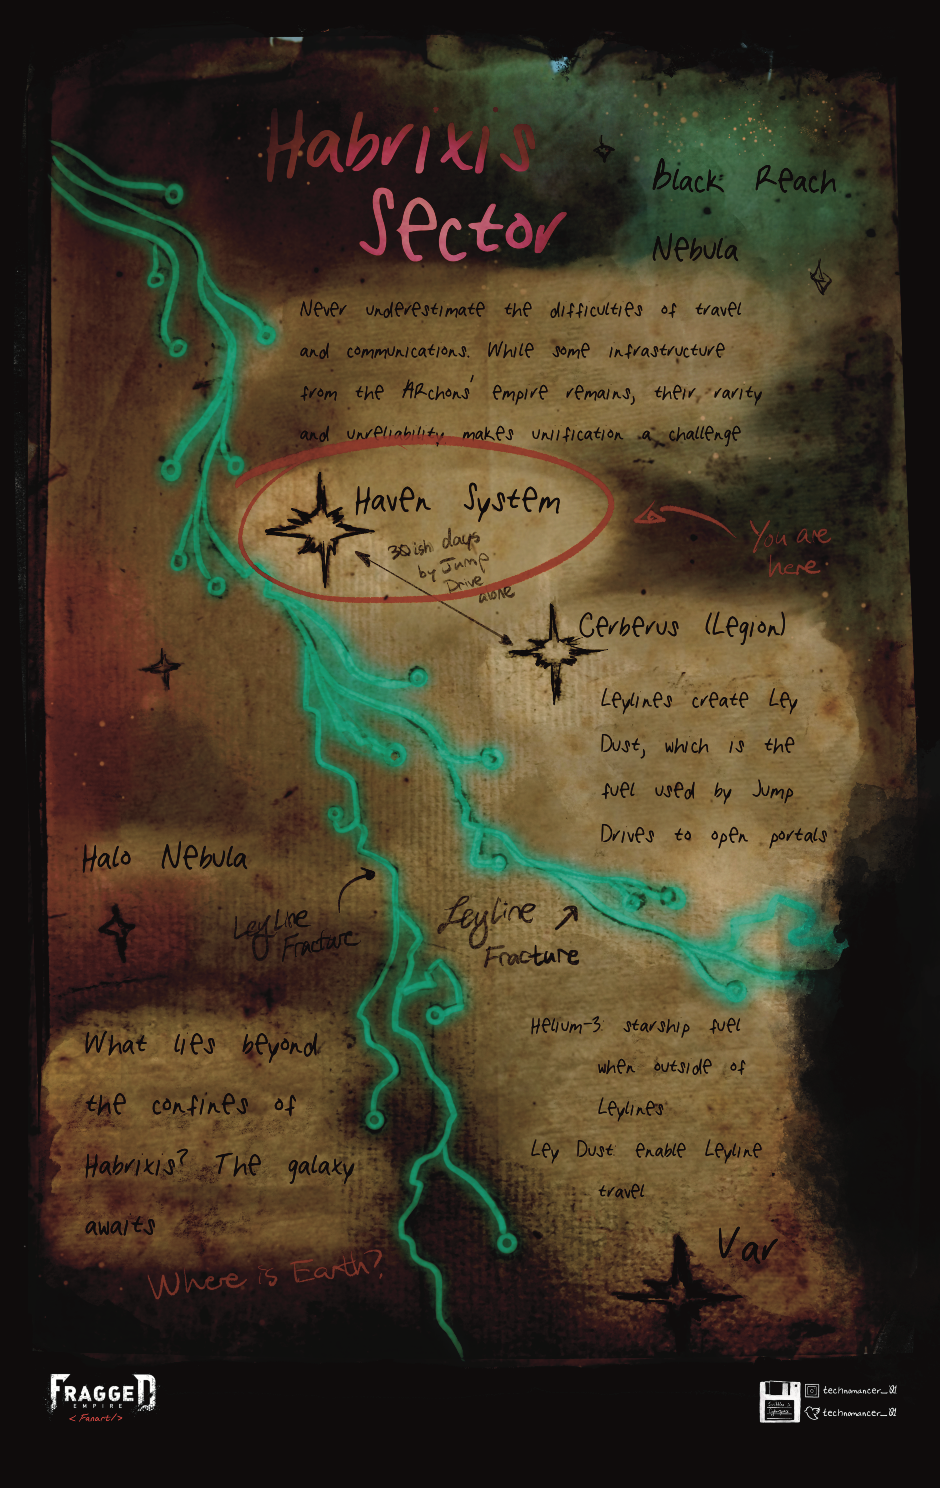 Habrixis
Sector
Black Reach
Nebula
Never underestimate the difficulties of travel
and communications. While some infrastructure
from the ARchons' empire remains, their rarity
and unreliability makes unification a challenge
Haven System
30ish days
by Jump
Drive
alone
You are
here
Cerberus (Legion)
Leylines create Ley
Dust, which is the
fuel used by Jump
Drives to open portals
Halo Nebula
Leyline
Fracture
Leyline
Fracture
What lies beyond
the confines of
Habrixis? The galaxy
awaits
Where is Earth?
Helium-3 starship fuel
when outside of
Leylines
Ley Dust enable Leyline
travel
Var
FRAGGED
EMPIRE
<Fanart/>
technomancer_01
technomancer_01